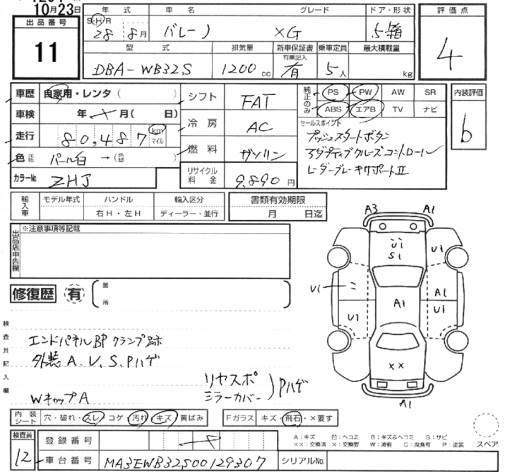 10月23日
出品番号
11
年式 車名 グレード ドア・形状
SHR 28年8月 バレーノ XG 5箱
型式 排気量 新車保証書 乗車定員 最大積載量
DBA-WB32S 1200cc 特業記入 有 5人 kg
評価点
4
車歴 自家用・レンタ( )
車検 年 月( 日)
走行 80,487 km マイル
色 元色 パール白 →( 色替 )
カラーNo ZHJ
シフト FAT
冷房 AC
燃料 ガソリン
リサイクル料金 9,890円
純正のみ
PS PW AW SR
ABS エアB TV ナビ
内装評価
b
セールスポイント
プッシュスタートボタン
アダプティブクルーズコントロール
レーダーブレーキサポートⅡ
輸入車 モデル年式 ハンドル 輸入区分
年 右H・左H ディーラー・並行
書類有効期限
月 日迄
出品店申告欄
※注意事項等記載
修復歴 有 箇所
A3 A1
Ui
S1
U1
U1
A1
A1
U1
U1
A1
××
A1
検査員記入欄
エンドパネルBPクランプ跡
外装A、V、S、Pハゲ
WキャップA
リヤスポ
ミラーカバー Pハゲ
内装シート 穴・破れ・スレ コゲ 汚れ キズ 黄ばみ
Fガラス キズ・飛石・×要す
検査員
12
登録番号
車台番号 MA3EWB32S00129307
シリアルNo.
A:キズ U:ヘコミ B:キズ&ヘコミ S:サビ
××:交換済 X:交換要 W:波有 C:腐食有 P:塗装
スペア